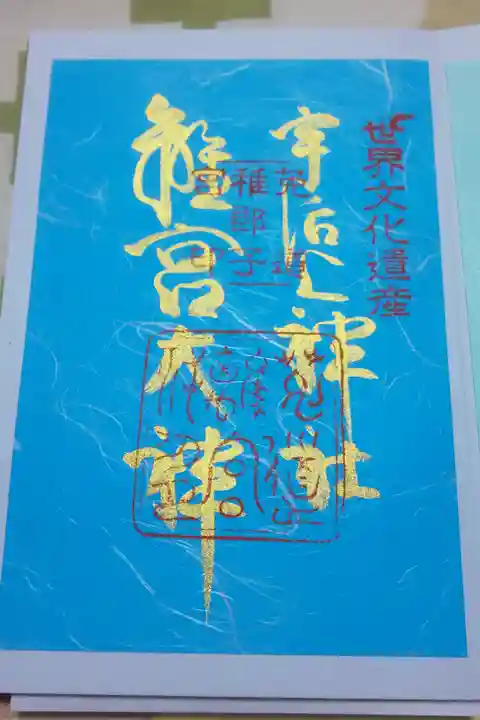 世界文化遺産
宇治上神社
菟道
稚郎子
離宮大神